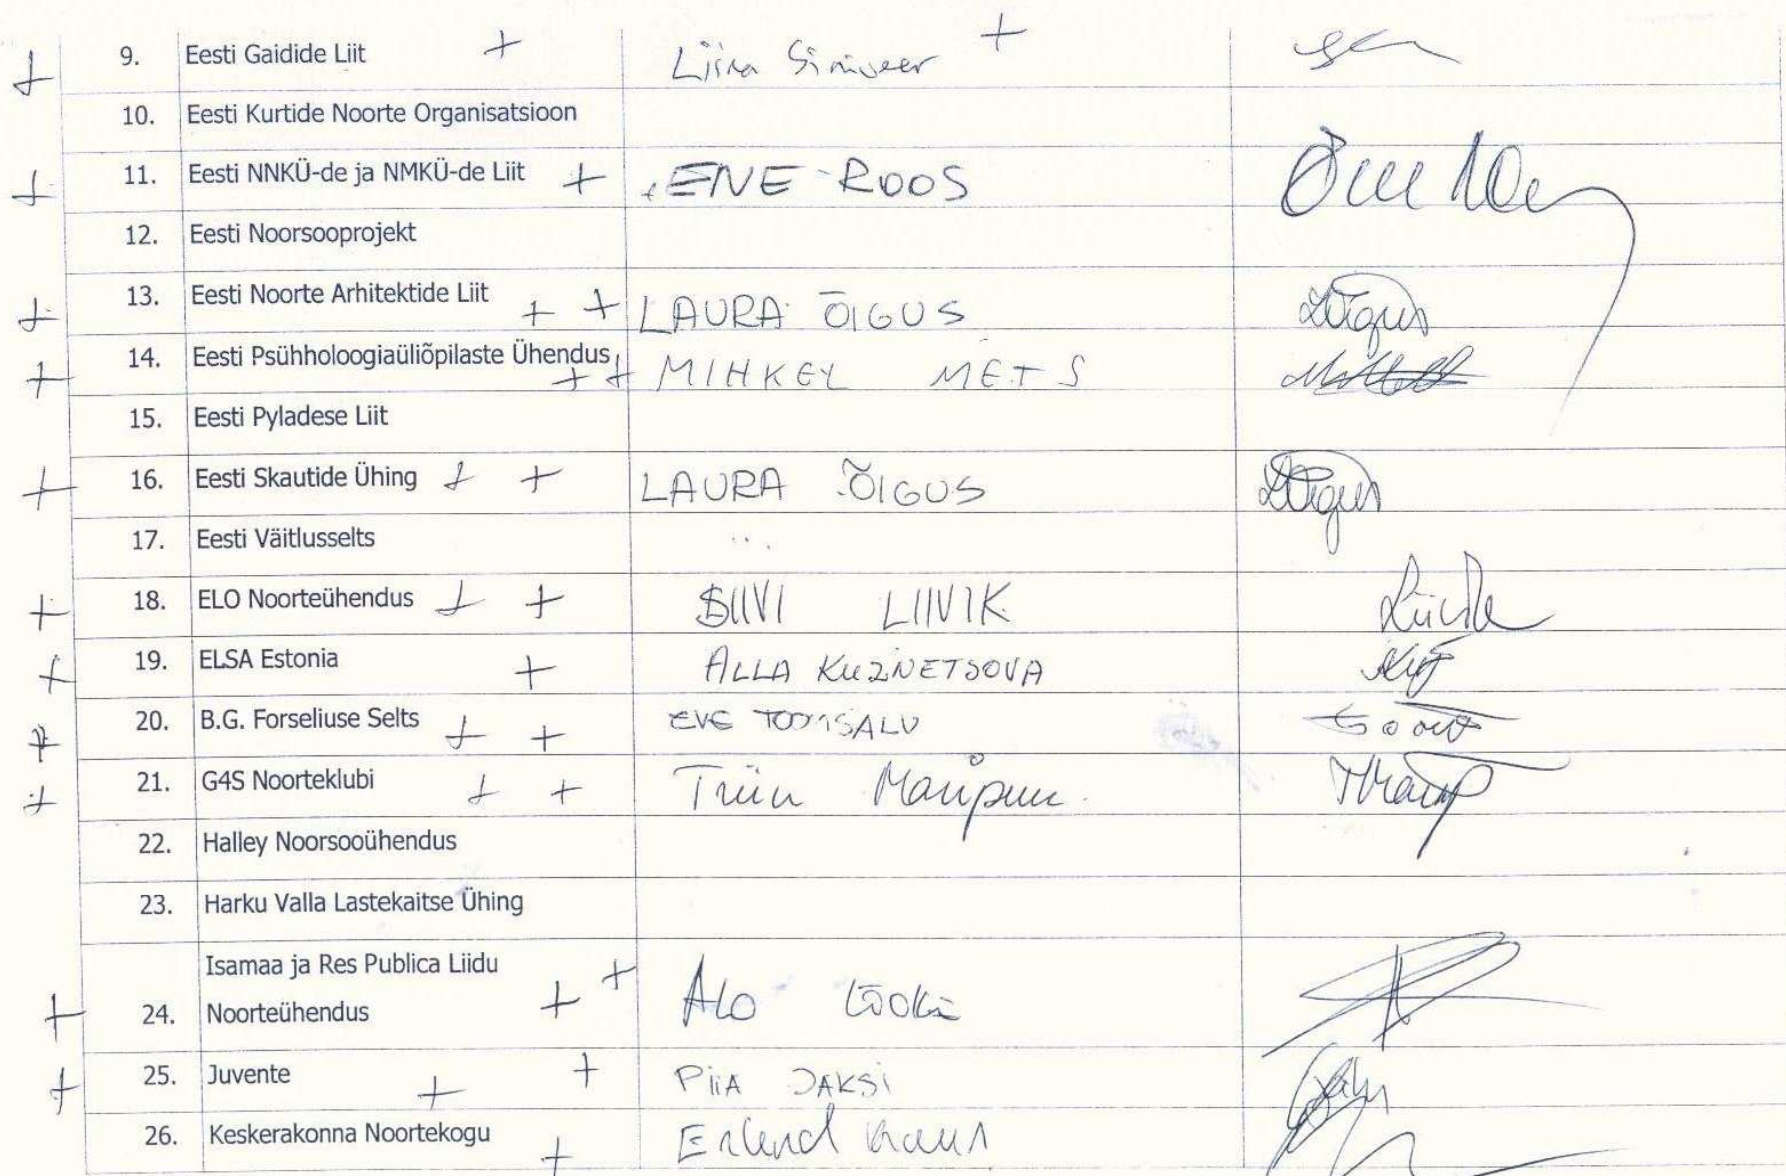 + 9. Eesti Gaidide Liit + Liina Siniveer +
10. Eesti Kurtide Noorte Organisatsioon
+ 11. Eesti NNKÜ-de ja NMKÜ-de Liit + ENE ROOS
12. Eesti Noorsooprojekt
+ 13. Eesti Noorte Arhitektide Liit + + LAURA ÕIGUS
+ 14. Eesti Psühholoogiaüliõpilaste Ühendus + + MIHKEL METS
15. Eesti Pyladese Liit
+ 16. Eesti Skautide Ühing + + LAURA ÕIGUS
17. Eesti Väitlusselts
+ 18. ELO Noorteühendus + + SIIVI LIIVIK
+ 19. ELSA Estonia + ALLA KUZNETSOVA
+ 20. B.G. Forseliuse Selts + + EVE TOOMSALU
+ 21. G4S Noorteklubi + + Triin
22. Halley Noorsooühendus
23. Harku Valla Lastekaitse Ühing
Isamaa ja Res Publica Liidu
+ 24. Noorteühendus + + ALO
+ 25. Juvente + + PIIA JAKSI
26. Keskerakonna Noortekogu + Erlend